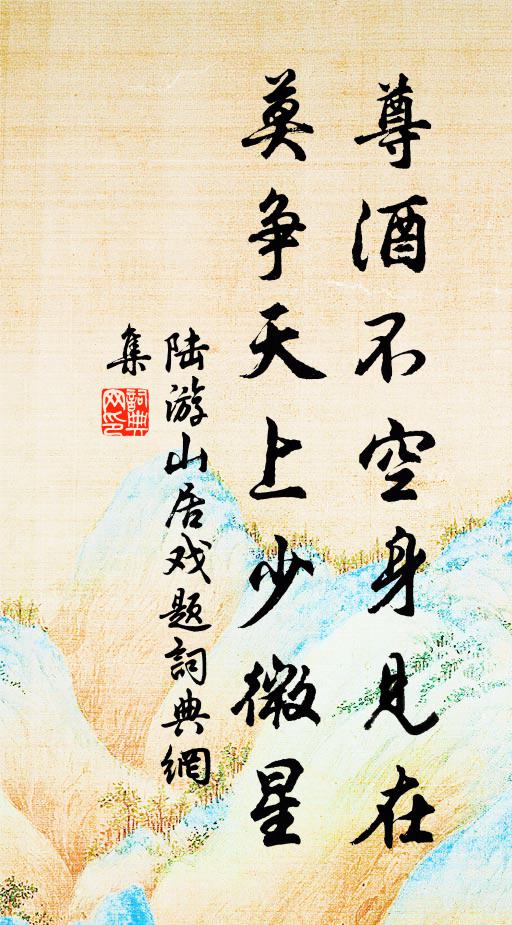 尊酒不空身见在
莫争天上少微星
陆游山居戏题詞典網
集
詞典网印